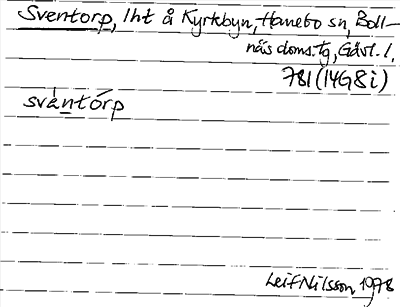 Sventorp, lht å Kyrkbyn, Hanebo sn, Boll-
näs doms.tg, Gävl. l.
781 (14G8i)
svántórp
Leif Nilsson 1978